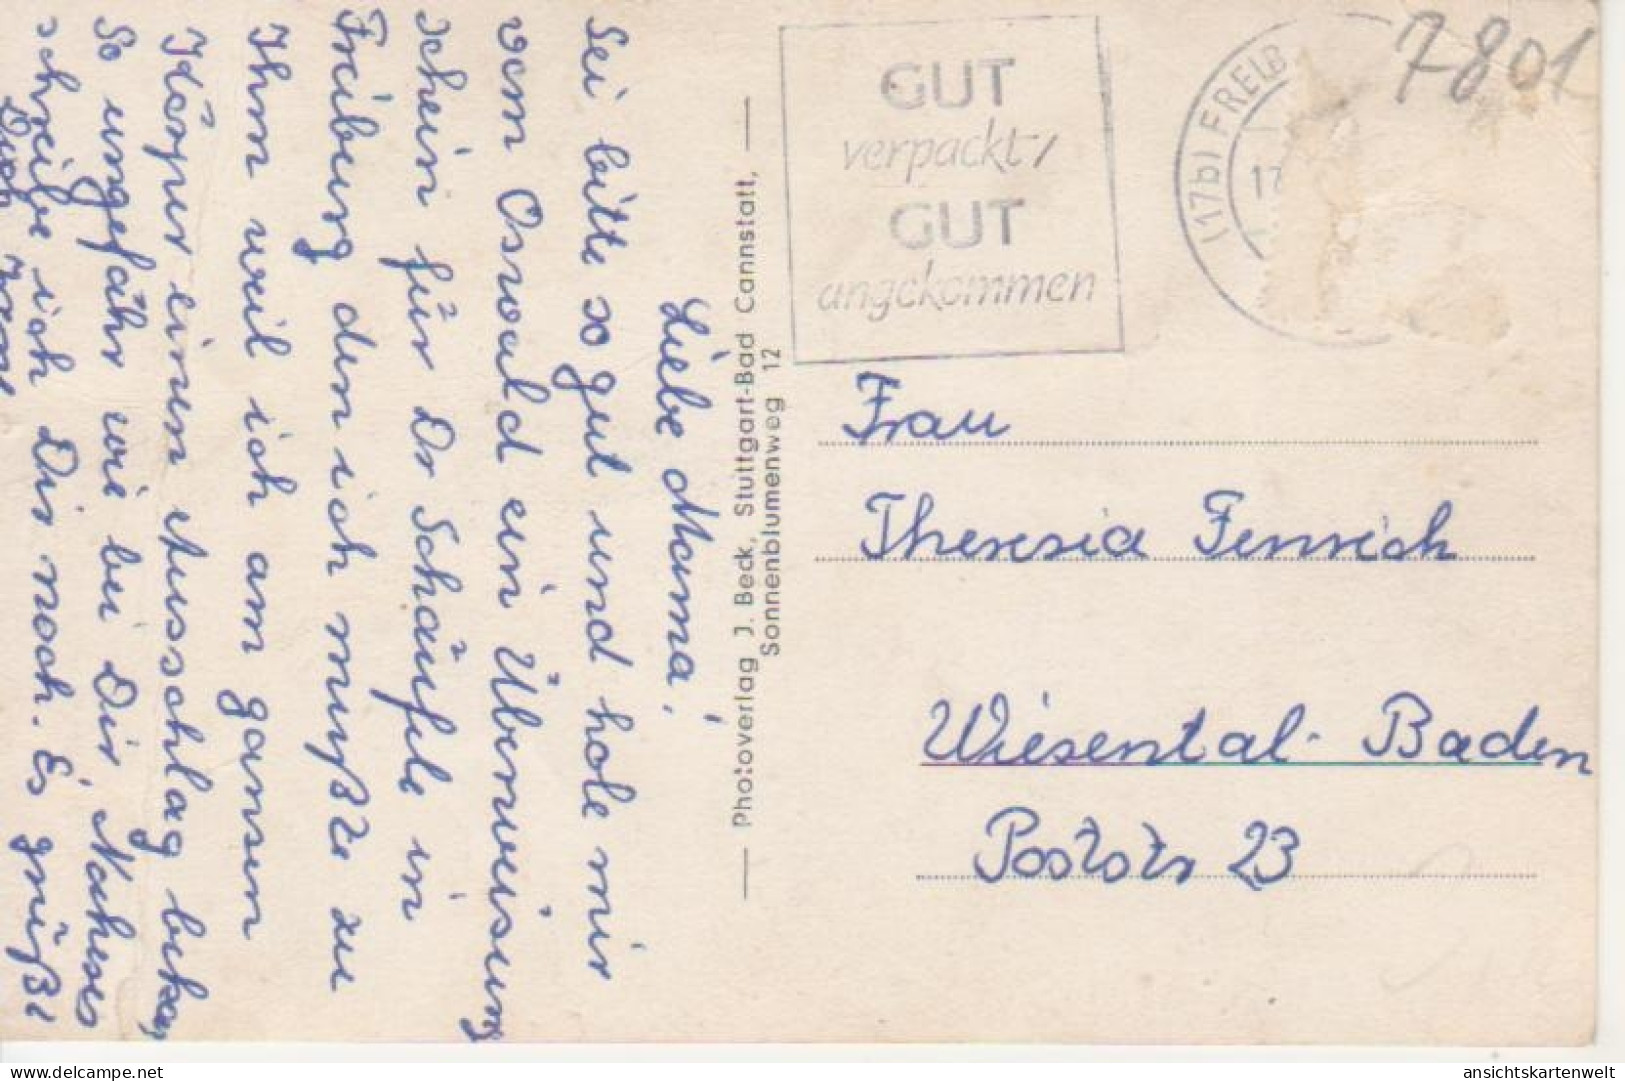 Liebe Mama!
Sei bitte so gut und hole mir
vom Oswald ein Überweisung
schein für Dr Schäufele in
Freiburg den ich mußte zu
Ihm weil ich am ganzen
Körper einen Ausschlag bekam
So ungefähr wie bei Dir, Näheres
schreibe ich Dir noch. Es grüßt
Dich
— Photoverlag J. Beck, Stuttgart-Bad Cannstatt, —
Sonnenblumenweg 12
GUT
verpackt/
GUT
angekommen
(17b) FREIB
17
7801
Frau
Theresia Fenrich
Wiesental-Baden
Poststr 23
ansichtskartenwelt